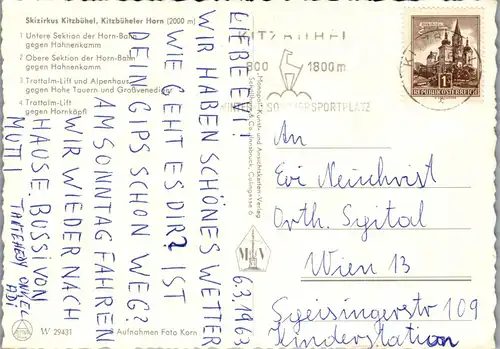 Skizirkus Kitzbühel, Kitzbüheler Horn (2000 m)
1 Untere Sektion der Horn-Bahn
gegen Hahnenkamm
2 Obere Sektion der Horn-Bahn
gegen Hahnenkamm
3 Trattalm-Lift und Alpenhaus
gegen Hohe Tauern und Großvenediger
4 Trattalm-Lift
gegen Hornköpfl
W 29431
Aufnahmen Foto Korn
6.3.1963
LIEBE EVI!
WIR HABEN SCHÖNES WETTER
WIE GEHT ES DIR? IST
DEIN GIPS SCHON WEG?
AM SONNTAG FAHREN
WIR WIEDER NACH
HAUSE BUSSI VON
MUTTI
TANTE HEDY ONKEL
ADI
Monopol-Kunst- und Ansichtskarten-Verlag
KITZBÜHEL
800 1800m
WINTER- SOMMERSPORTPLATZ
REPUBLIK ÖSTERREICH
An
Evi Neuchrist
Orth. Spital
Wien 13
Speisingerstr 109
Kinderstation